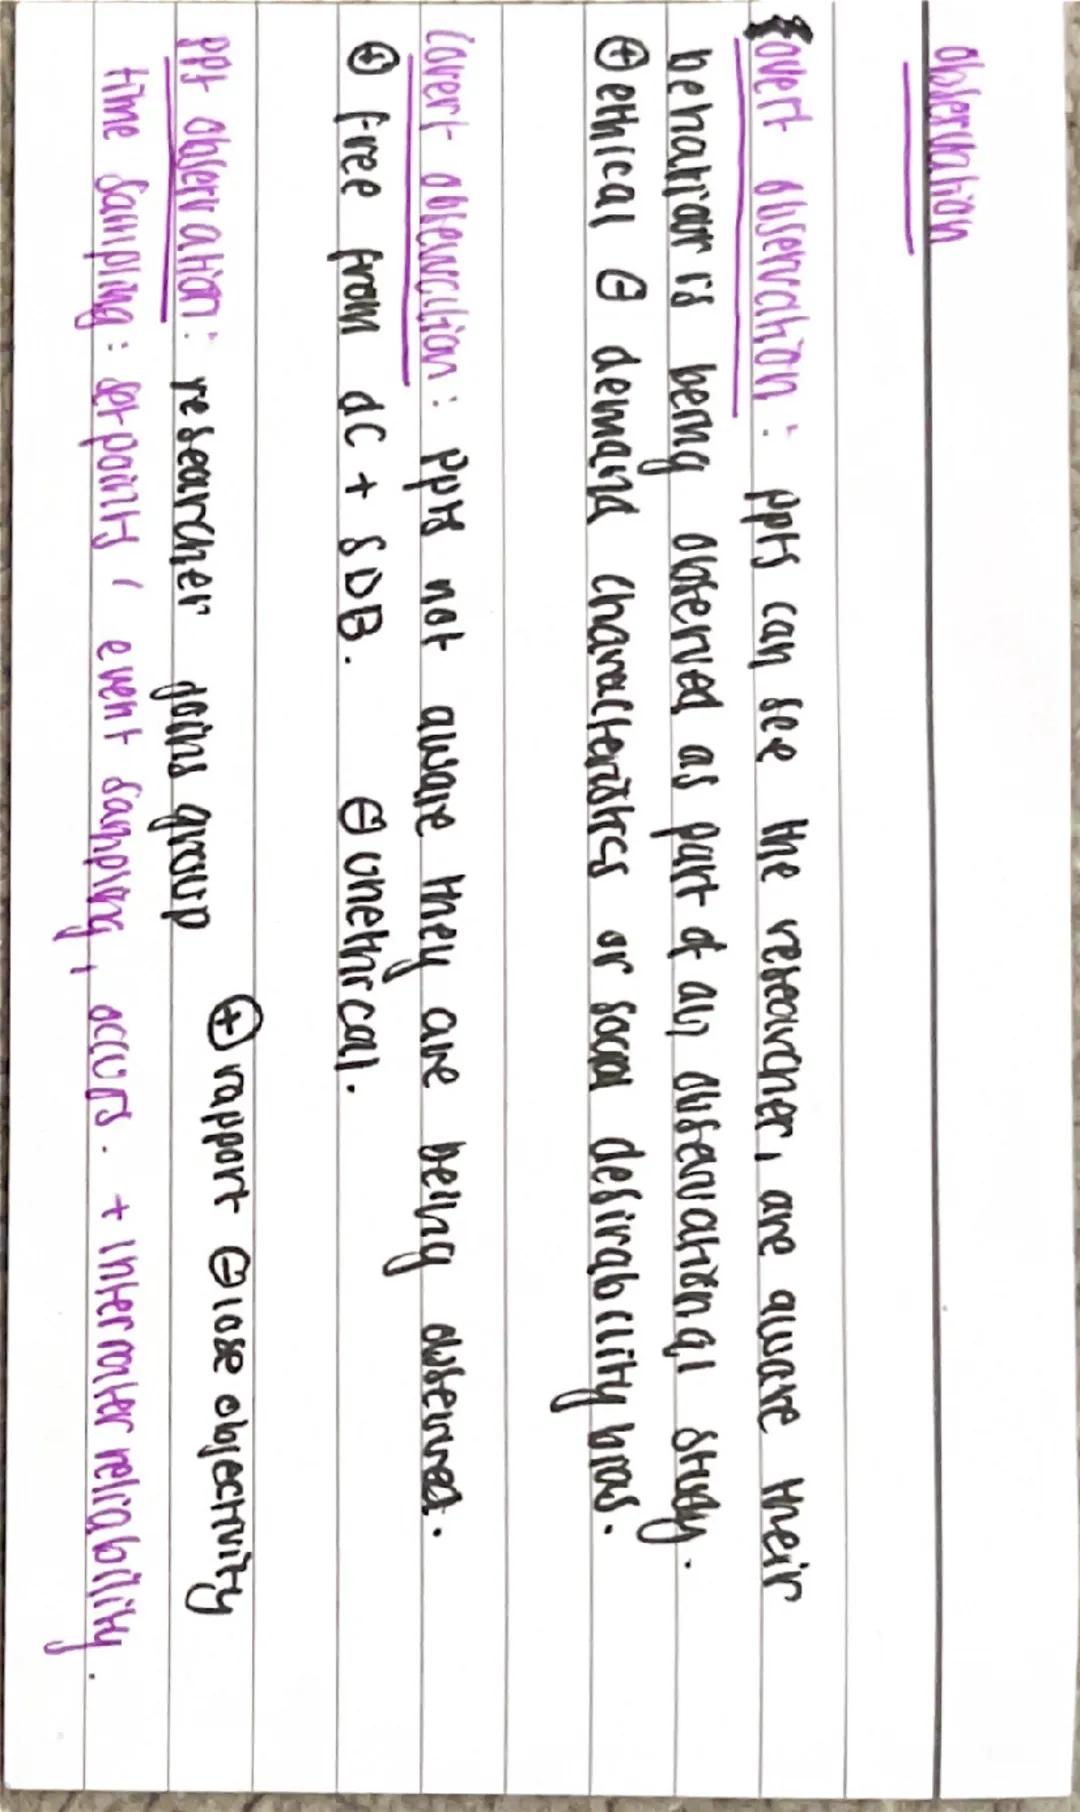 observation
overt observation: ppts can see the researcher, are aware their
behaviar is being observed as part of an observational study.
⊕ ethical ⊖ demand characteristics or social desirability bias.
Covert observation: ppts not aware they are being observed.
⊕ free from dc + SDB. ⊖ unethical.
⊕ rapport ⊖ lose objectivity
ppt observation: researcher joins group
time sampling: set points, event sampling, occurs. + inter rater reliability.